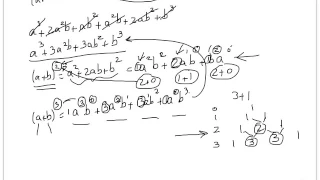 a³ + 2a²b + ab² + a²b + 2ab² + b³
a³ + 3a²b + 3ab² + b³
(a+b)² = a² + 2ab + b² = 1a²b⁰ + 2a¹b¹ + 1b²a⁰
2+0 1+1 2+0
(a+b)³ = 1a³b⁰ + 3a²b¹ + 3a¹b² + 1a⁰b³
3+1
0 1
1 1 1
2 1 2 1
3 1 3 3 1